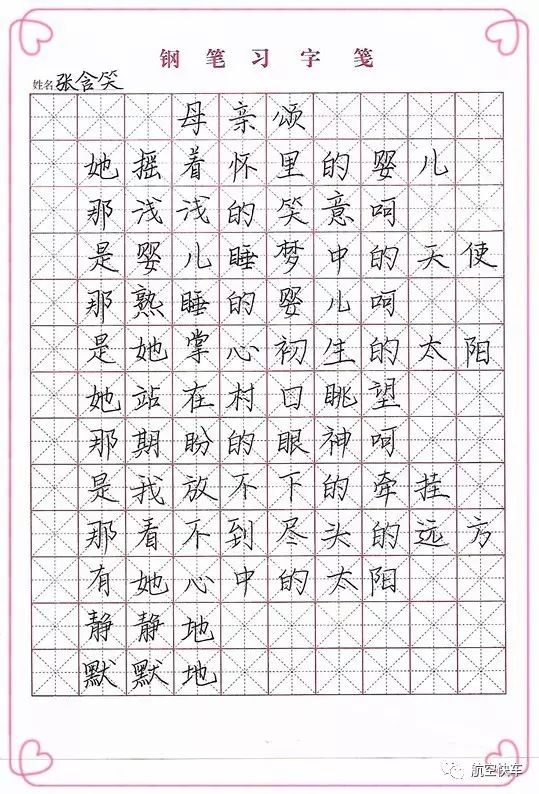 钢笔习字笺
姓名 张含笑
母亲颂
她摇着怀里的婴儿
那浅浅的笑意呵
是婴儿睡梦中的天使
那熟睡的婴儿呵
是她掌心初生的太阳
她站在村口眺望
那期盼的眼神呵
是我放不下的牵挂
那看不到尽头的远方
有她心中的太阳
静静地
默默地
航空快车